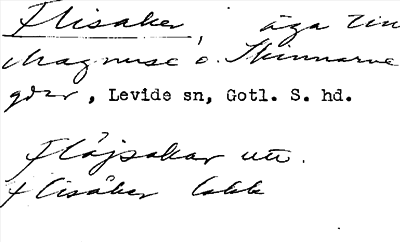 Flisaker, i äga till
Magnuse o. Skinnarve
gdr, Levide sn, Gotl. S. hd.
Flajsakar utt.
Flisåker lokk